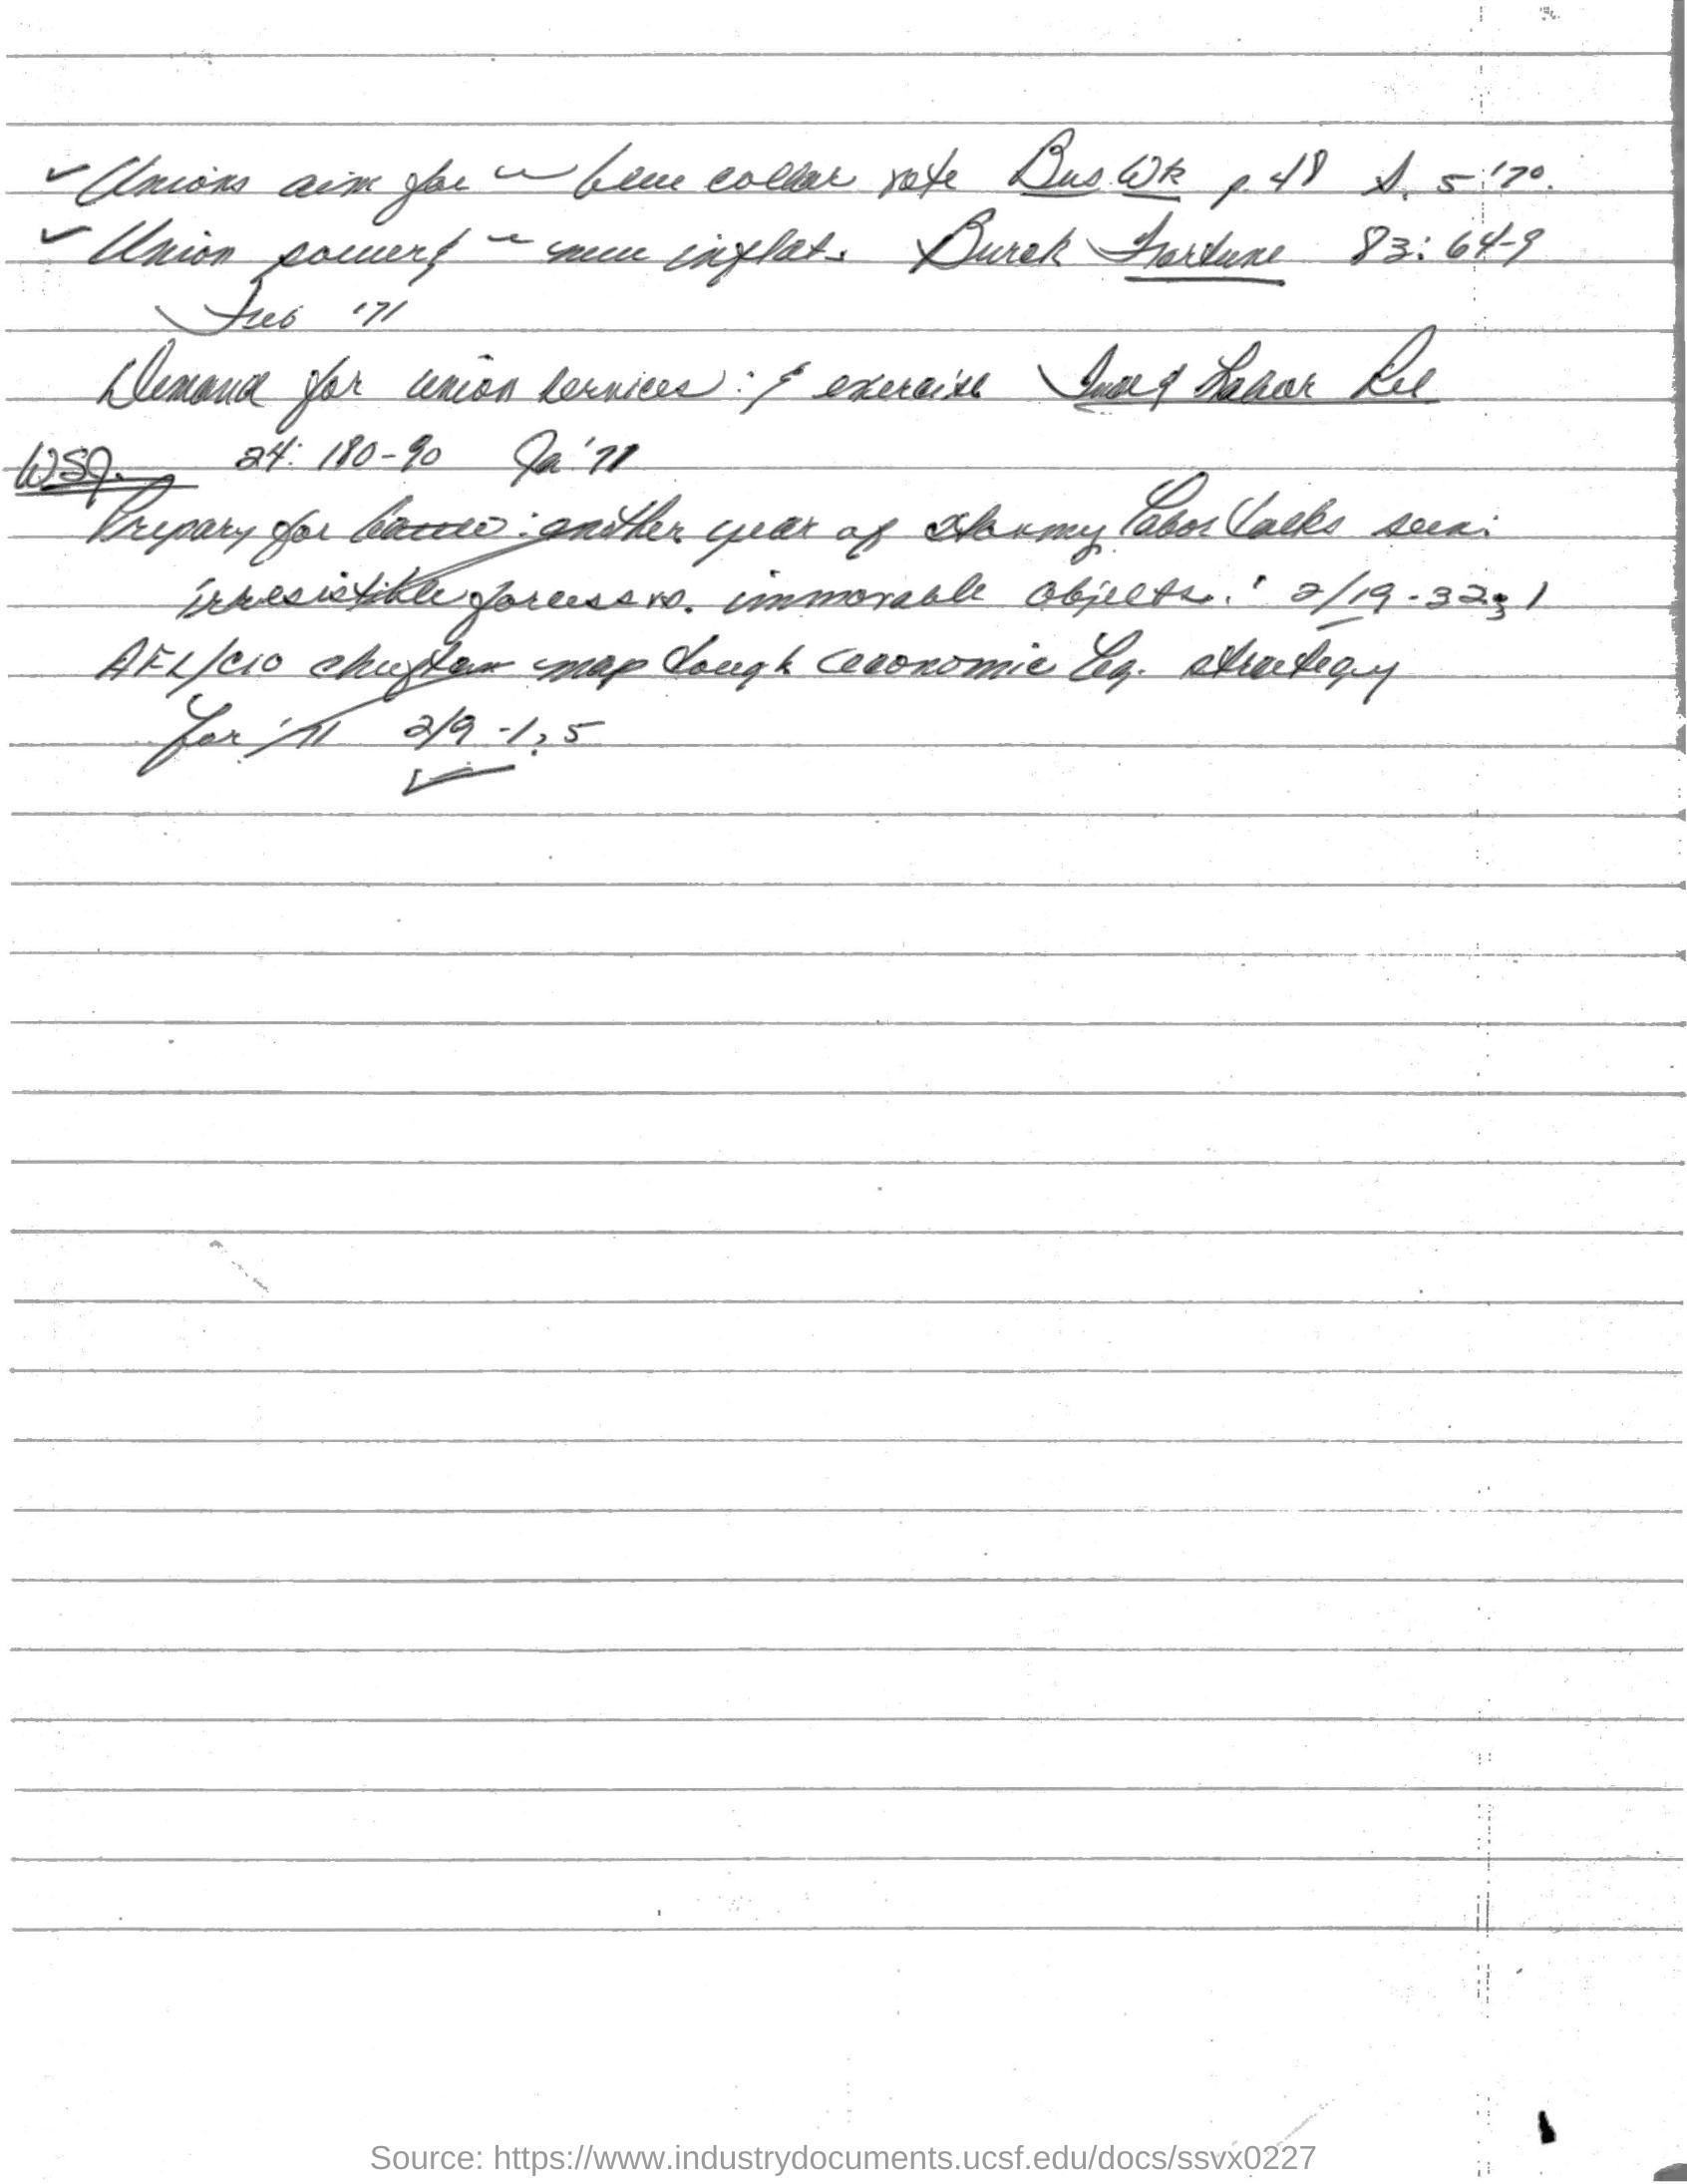 Unions aim for blue collar vote Bus Wk p. 48 S. 5 '70.
Union power & new inflat. Burck Fortune 83: 64-9
Feb '71
Demand for union services: exercise Ind & Labor Rel
24: 180-90 Ja '71
WSJ.
Prepary for battle: another year of stormy labor talks seen:
irresistible forces vs. immovable objects. 2/19 - 32; 1
AFL/CIO map tough economic Leg. strategy
for '71 2/9 - 1, 5
Source: https://www.industrydocuments.ucsf.edu/docs/ssvx0227